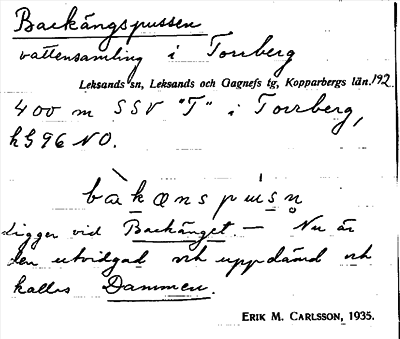 Backängspussen
vattensamling i Torrberg
Leksands sn, Leksands och Gagnefs tg, Kopparbergs län. 192
400 m SSV "T" i Torrberg,
hG 96 NO.
bàkænspúsn̥
Ligger vid Backänget. — Nu är
den utvidgad och uppdämd och
kallas Dammen.
ERIK M. CARLSSON, 1935.